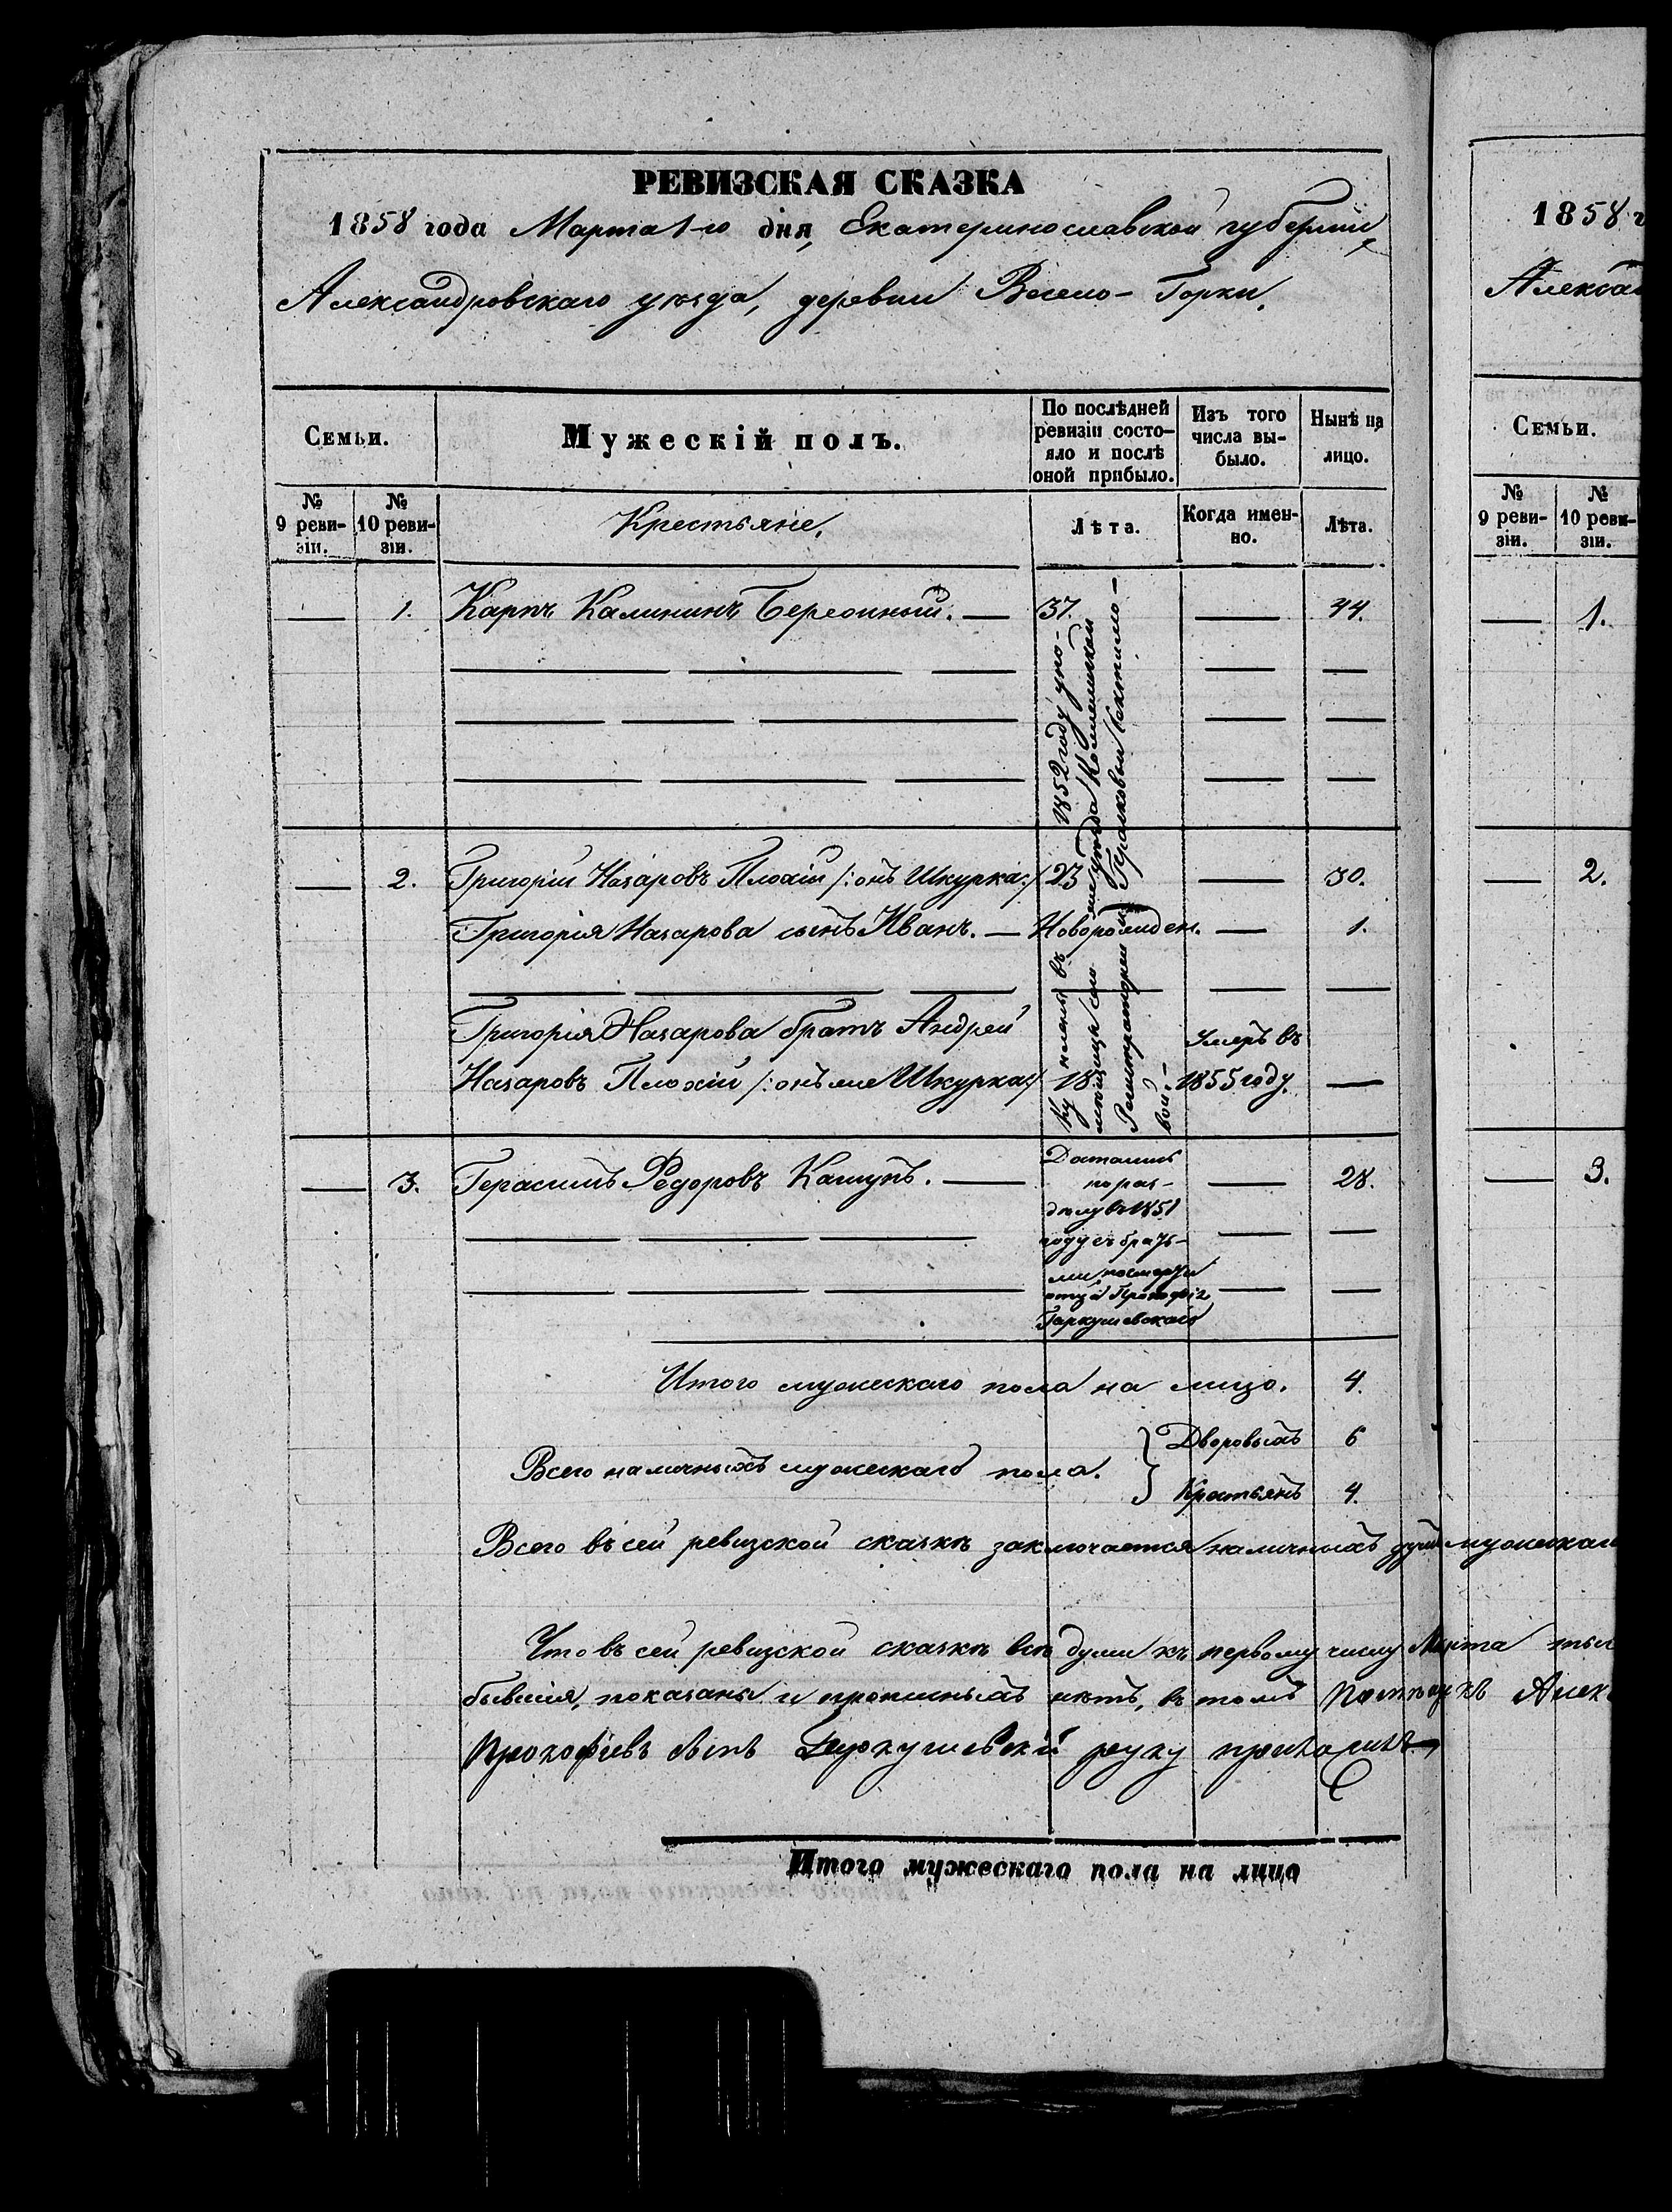 РЕВИЗСКАЯ СКАЗКА
1858 года Марта 1-го дня, Екатеринославской губернии,
Александровскаго уѣзда, деревни Весело-Горки.
Семьи.
Мужескій полъ.
По послѣдней ревизіи состо-
яло и послѣ
оной прибыло.
Изъ того
числа вы-
было.
Нынѣ на
лицо.
№
9 реви-
зіи.
№
10 реви-
зіи.
Крестьяне.
Лѣта.
Когда имен-
но.
Лѣта.
— 1. Карпъ Калининъ — 37. — 44.
— 2. Григорій Назаровъ Плохій /:онъ Шкурка:/ 23 — 30.
Григорія Назарова сынъ Иванъ. — Новорожден. — 1.
Григорія Назарова братъ Андрей Умеръ въ
Назаровъ Плохій /:онъ же Шкурка:/ 18 1855 году. —
Купленъ въ 1852 году
— 3. Герасимъ Федоровъ — 28.
Достались
по раз-
дѣлу въ 1851
году съ брать-
ми по смерти
отца Прокофія
Гаркушевскаго
Итого мужескаго пола на лицо. 4.
Всего наличныхъ мужескаго пола. } Дворовыхъ 6
Крестьянъ 4.
Всего въ сей ревизской сказкѣ заключается наличныхъ душъ мужескаго
Что въ сей ревизской сказкѣ всѣ души къ первому числу Марта
бывшія, показаны и прописныхъ нѣтъ, въ томъ
Прокофіевъ сынъ Гаркушевскій руку приложилъ
Итого мужескаго пола на лицо
1858 г
Алексан
Семьи.
№
9 реви-
зіи.
№
10 реви-
зіи.
— 1.
— 2.
— 3.